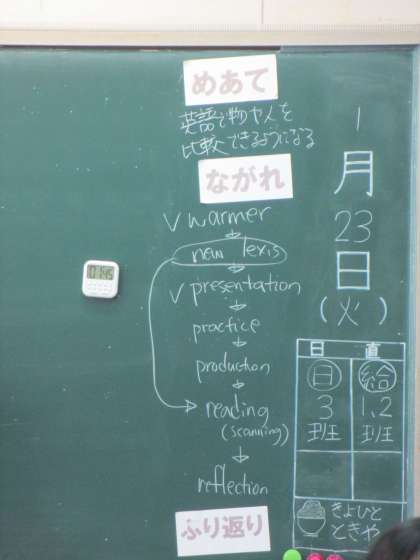 めあて
英語で物や人を
比較できるようになる
ながれ
✓ warmer
new lexis
✓ presentation
practice
production
reading
(scanning)
reflection
ふり返り
1
月
23
日
(火)
日直
日 給
3 1,2
班 班
きよひと
ときや